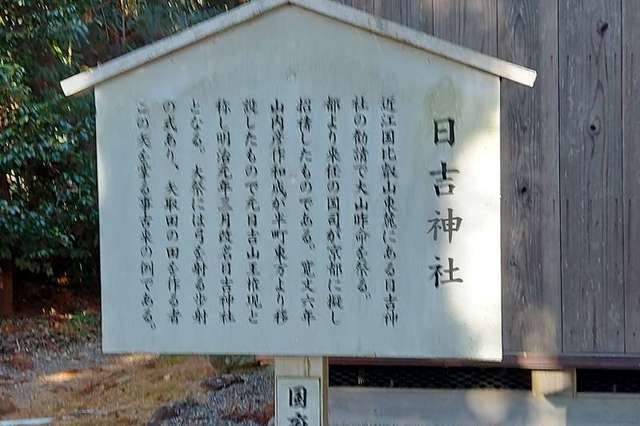 日吉神社
近江国比叡山東麓にある日吉神
社の勧請で大山咋命を祭る。
都より来任の国司が京都に擬し
招請したものである。寛文六年
山内美作和成が半町東方より移
設したもので元日吉山王権現と
称し明治元年三月改名日吉神社
となる。大祭には弓を射る歩射
の式あり、大歌田の田を作る者
この矢を掌る事古来の例である。
国